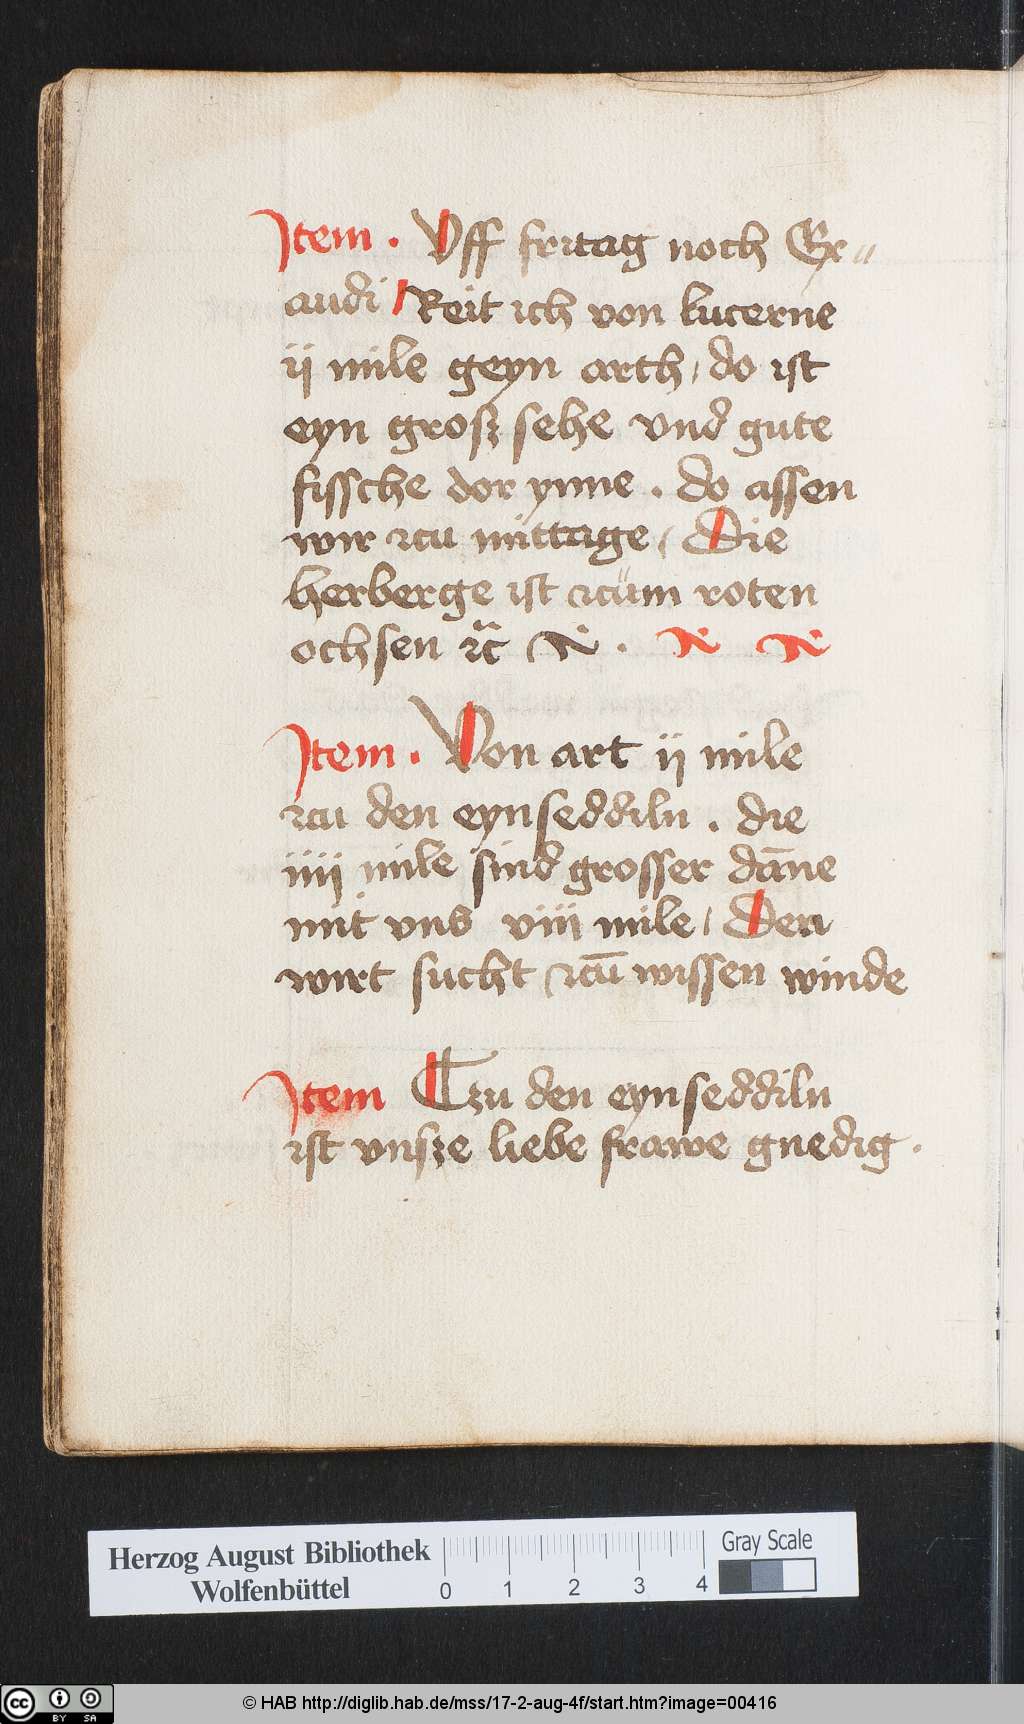 Item . Vff fritag noch Ex〃
audi Reit ich von lucerne
ii mile geyn arth / do ist
eyn grosz sehe vnd gute
fissche dor ynne . do assen
wir zcu mittage / Die
herberge ist zcüm roten
ochsen
Item . Von art ii mile
zcu den eynseddiln . die
iiii mile sind grosser dāne
mit vns viii mile / Den
wirt sucht zcū wissen winde
Item Tzu den eynseddiln
ist vnsze liebe frawe gnedig .
Herzog August Bibliothek
Wolfenbüttel
0 1 2 3 4
Gray Scale
cc BY SA
© HAB http://diglib.hab.de/mss/17-2-aug-4f/start.htm?image=00416